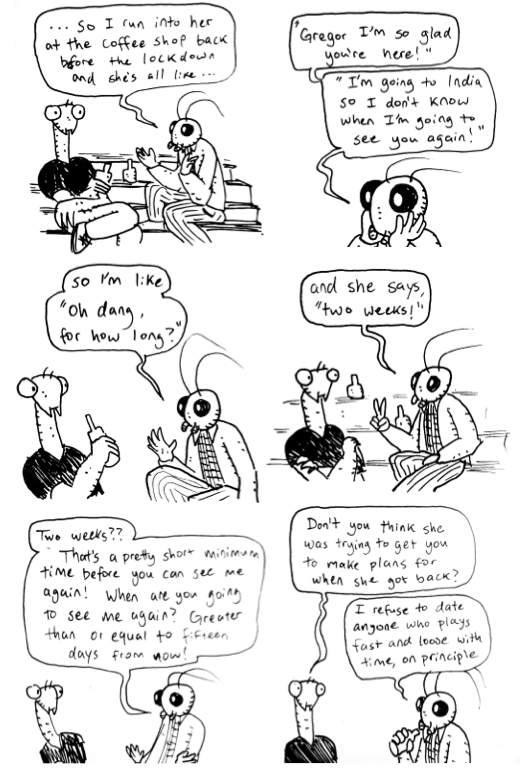 ... so I run into her
at the coffee shop back
before the lockdown
and she's all like ...
"Gregor I'm so glad
you're here!"
"I'm going to India
so I don't know
when I'm going to
see you again!"
so I'm like
"Oh dang,
for how long?"
and she says,
"two weeks!"
Two weeks??
That's a pretty short minimum
time before you can see me
again! When are you going
to see me again? Greater
than or equal to fifteen
days from now!
Don't you think she
was trying to get you
to make plans for
when she got back?
I refuse to date
anyone who plays
fast and loose with
time, on principle